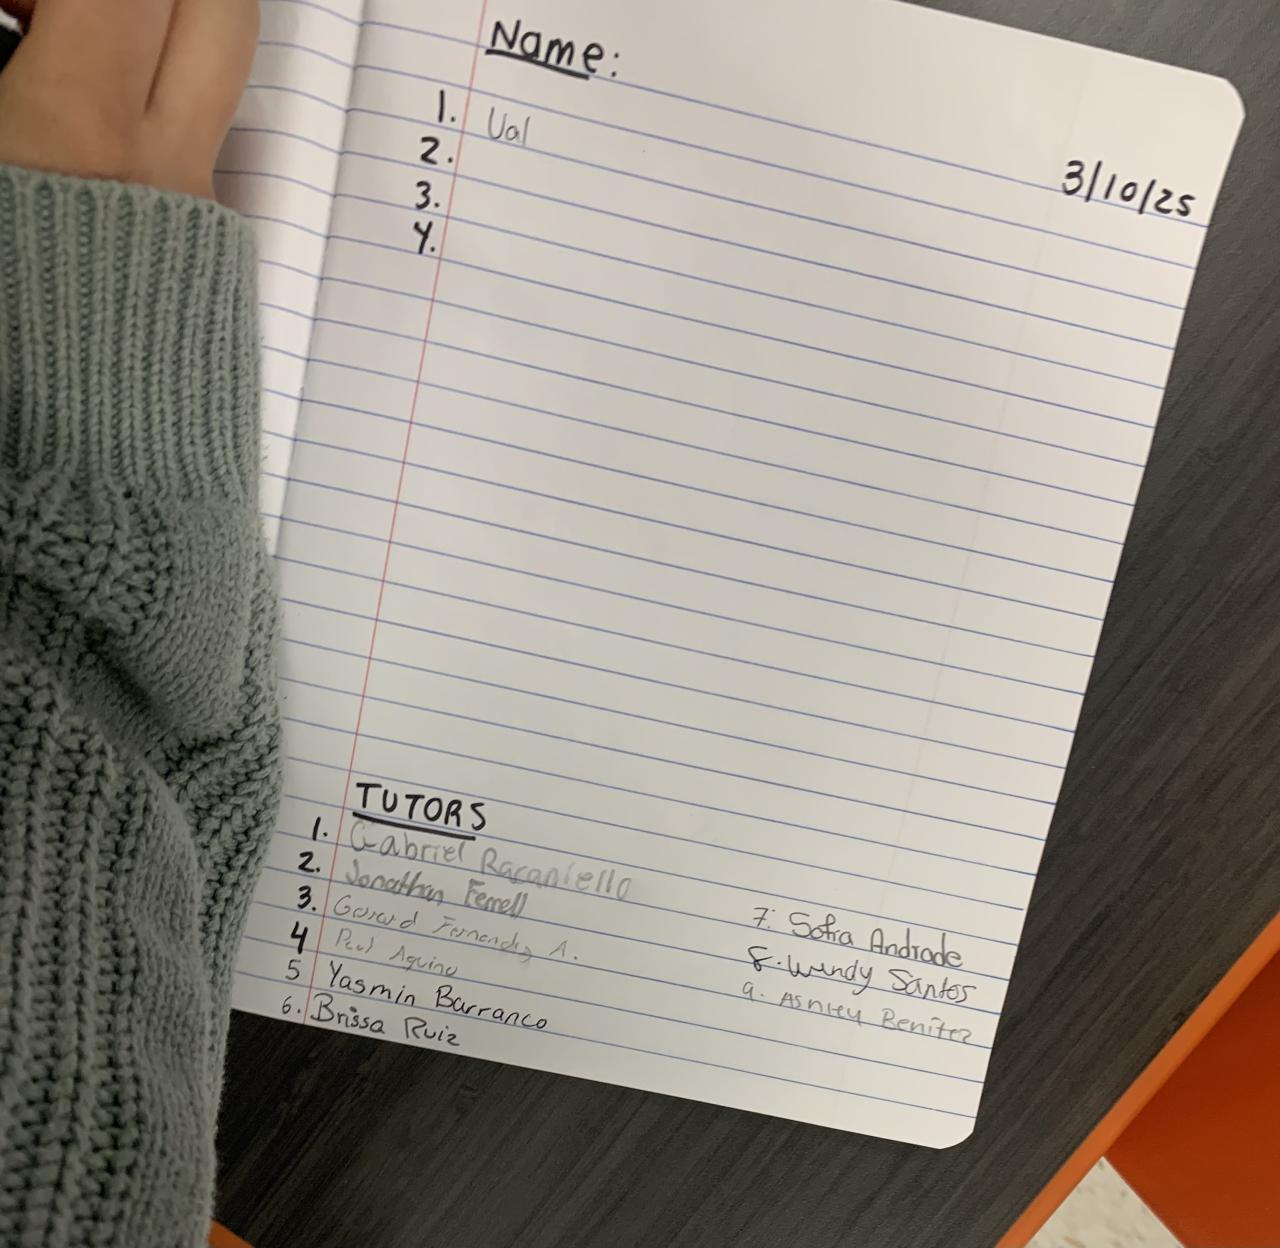 Name:
1. Val
2.
3.
4.
3/10/25
TUTORS
1. Gabriel Racaniello
2. Jonathan Ferrell
3. Gerard Fernandez A.
4 Paul Aquino
5 Yasmin Barranco
6. Brissa Ruiz
7. Sofia Andrade
8. Wendy Santos
9. Ashley Benitez